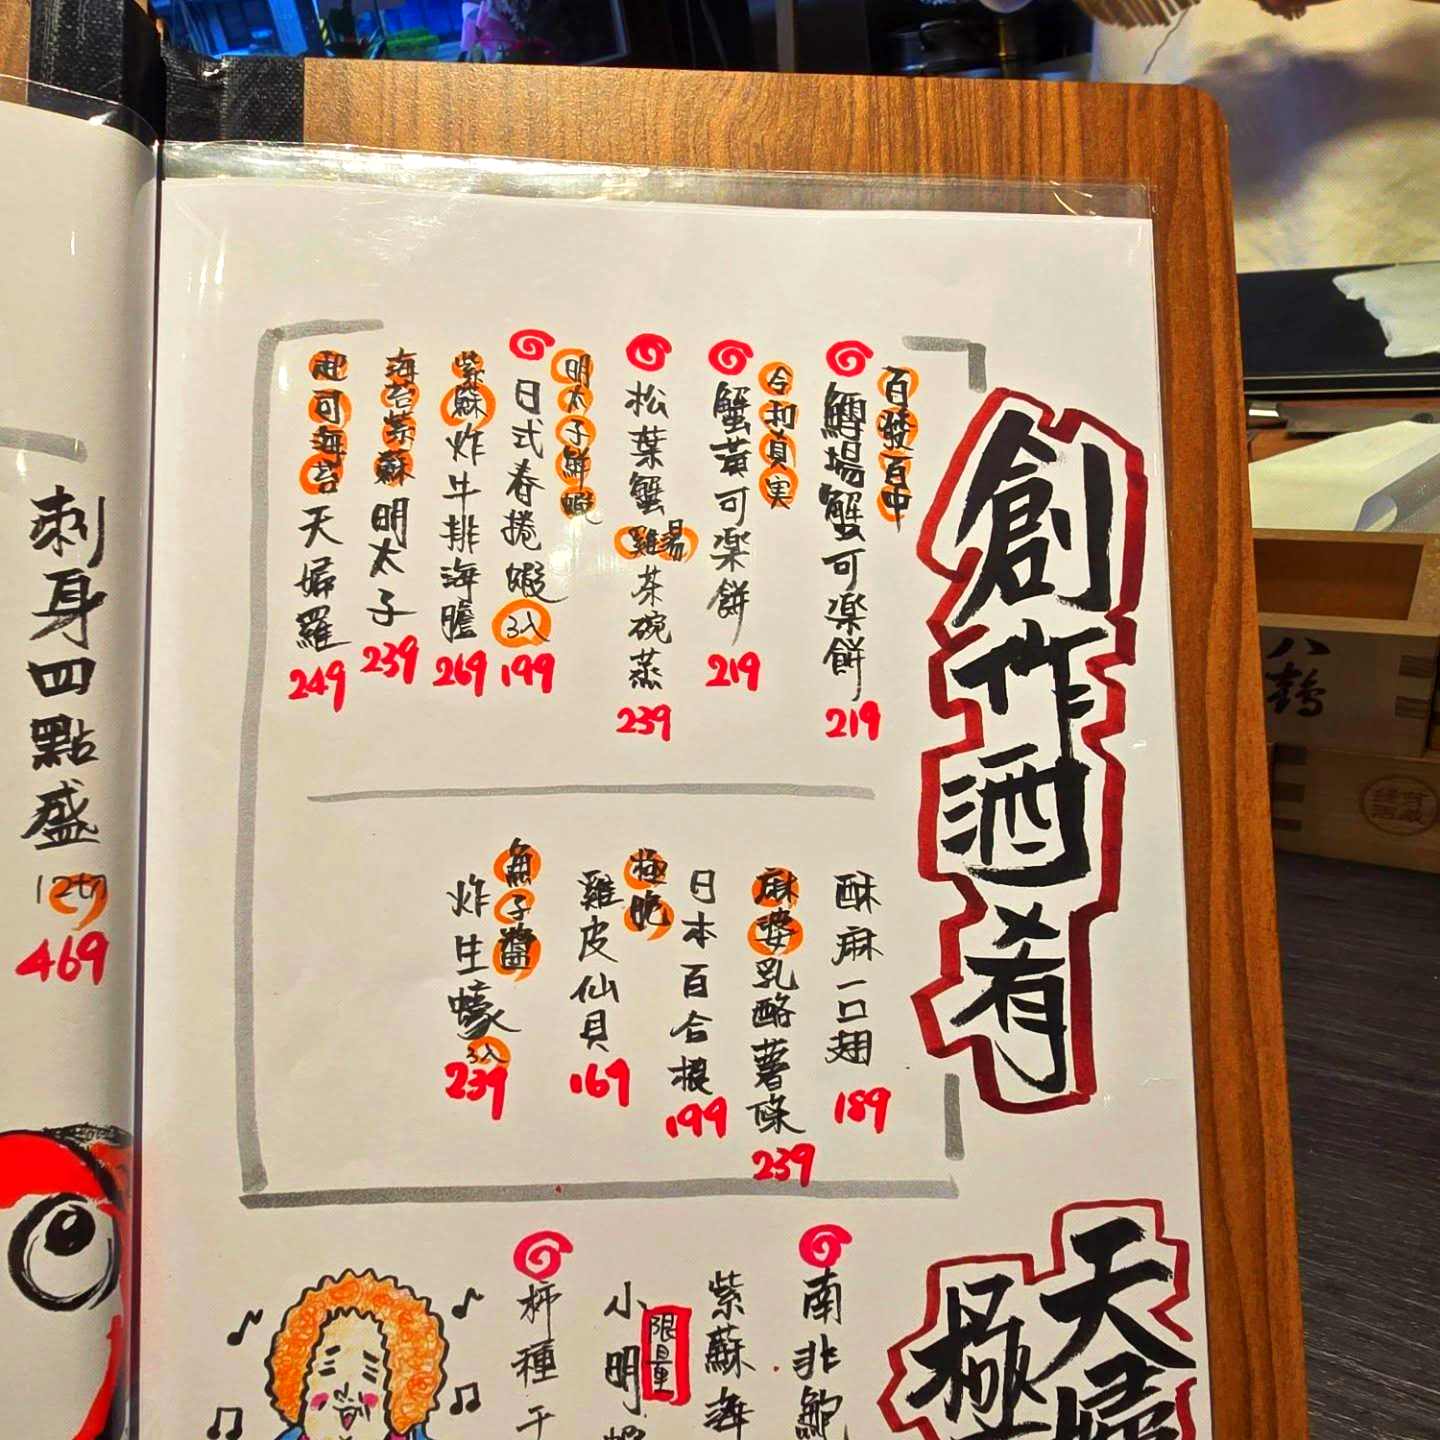 創作酒肴
百發百中
鱈場蟹可楽餅
219
合利員実
蟹黃可楽餅
219
松葉蟹雞湯茶碗蒸
239
明太子鮮蝦
日式春捲蝦3入
199
紫蘇炸牛排海膽
269
海苔紫蘇明太子
239
起司海苔天婦羅
249
酥麻一口翅
189
麻婆乳酪薯條
239
日本百合根
199
極脆
雞皮仙貝
169
魚子醬
炸生蠔3入
239
天婦
極
南非鮑
紫蘇海
限量
小明蝦
柿種干
刺身四點盛
12切
469
八鶴